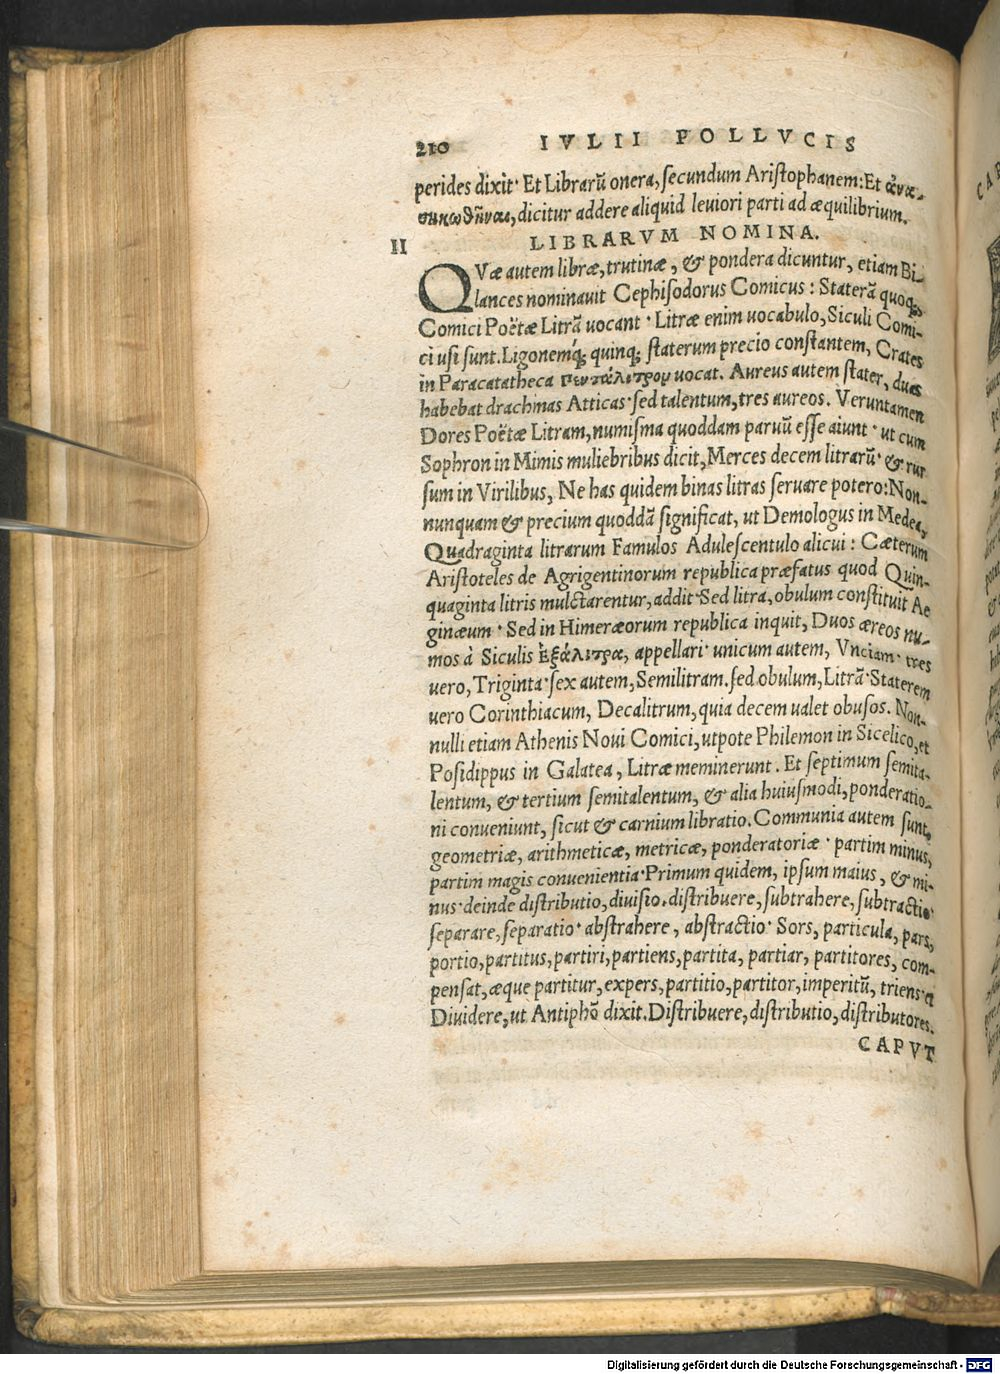 210 IVLII POLLVCIS
perides dixit· Et Librarū onera, secundum Aristophanem: Et ἀνα-
σηκωθῆναι, dicitur addere aliquid leuiori parti ad æquilibrium.
II LIBRARVM NOMINA.
QVæ autem libræ, trutinæ, & pondera dicuntur, etiam Bi-
lances nominauit Cephisodorus Comicus: Staterā quoq;
Comici Poëtæ Litrā uocant· Litræ enim uocabulo, Siculi Comi-
ci usi sunt. Ligonemq́; quinq; staterum precio constantem, Crates
in Paracatatheca πεντάλιτρον uocat. Aureus autem stater, duas
habebat drachmas Atticas· sed talentum, tres aureos. Veruntamen
Dores Poëtæ Litram, numisma quoddam paruū esse aiunt· ut cum
Sophron in Mimis muliebribus dicit, Merces decem litrarū· & rur
sum in Virilibus, Ne has quidem binas litras seruare potero: Non-
nunquam & precium quoddā significat, ut Demologus in Medea,
Quadraginta litrarum Famulos Adulescentulo alicui: Cæterum
Aristoteles de Agrigentinorum republica præfatus quod Quin-
quaginta litris mulctarentur, addit· Sed litra, obulum constituit Ae
ginæum· Sed in Himeræorum republica inquit, Duos æreos nu-
mos à Siculis ἑξάλιτρα, appellari· unicum autem, Vnciam· tres
uero, Triginta· sex autem, Semilitram. sed obulum, Litrā· Staterem
uero Corinthiacum, Decalitrum, quia decem ualet obusos. Non-
nulli etiam Athenis Noui Comici, utpote Philemon in Sicelico, et
Posidippus in Galatea, Litræ meminerunt. Et septimum semita-
lentum, & tertium semitalentum, & alia huiusmodi, ponderatio-
ni conueniunt, sicut & carnium libratio. Communia autem sunt,
geometriæ, arithmeticæ, metricæ, ponderatoriæ· partim minus,
partim magis conuenientia· Primum quidem, ipsum maius, & mi-
nus· deinde distributio, diuisio. distribuere, subtrahere, subtractio·
separare, separatio· abstrahere, abstractio· Sors, particula, pars,
portio, partitus, partiri, partiens, partita, partiar, partitores, com-
pensat, æque partitur, expers, partitio, partitor, imperitū, triens· et
Diuidere, ut Antiphō dixit. Distribuere, distributio, distributores.
CAPVT
Digitalisierung gefördert durch die Deutsche Forschungsgemeinschaft - DFG